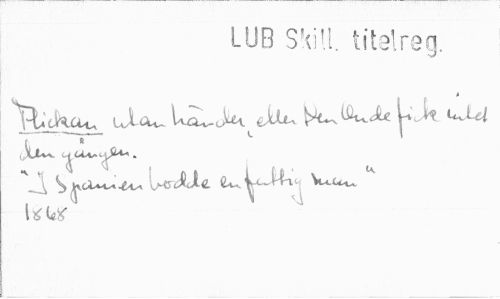 LUB Skill. titelreg.
Flickan utan händer, eller Den Onde fick intet
den gången.
"I Spanien bodde en fattig man"
1868